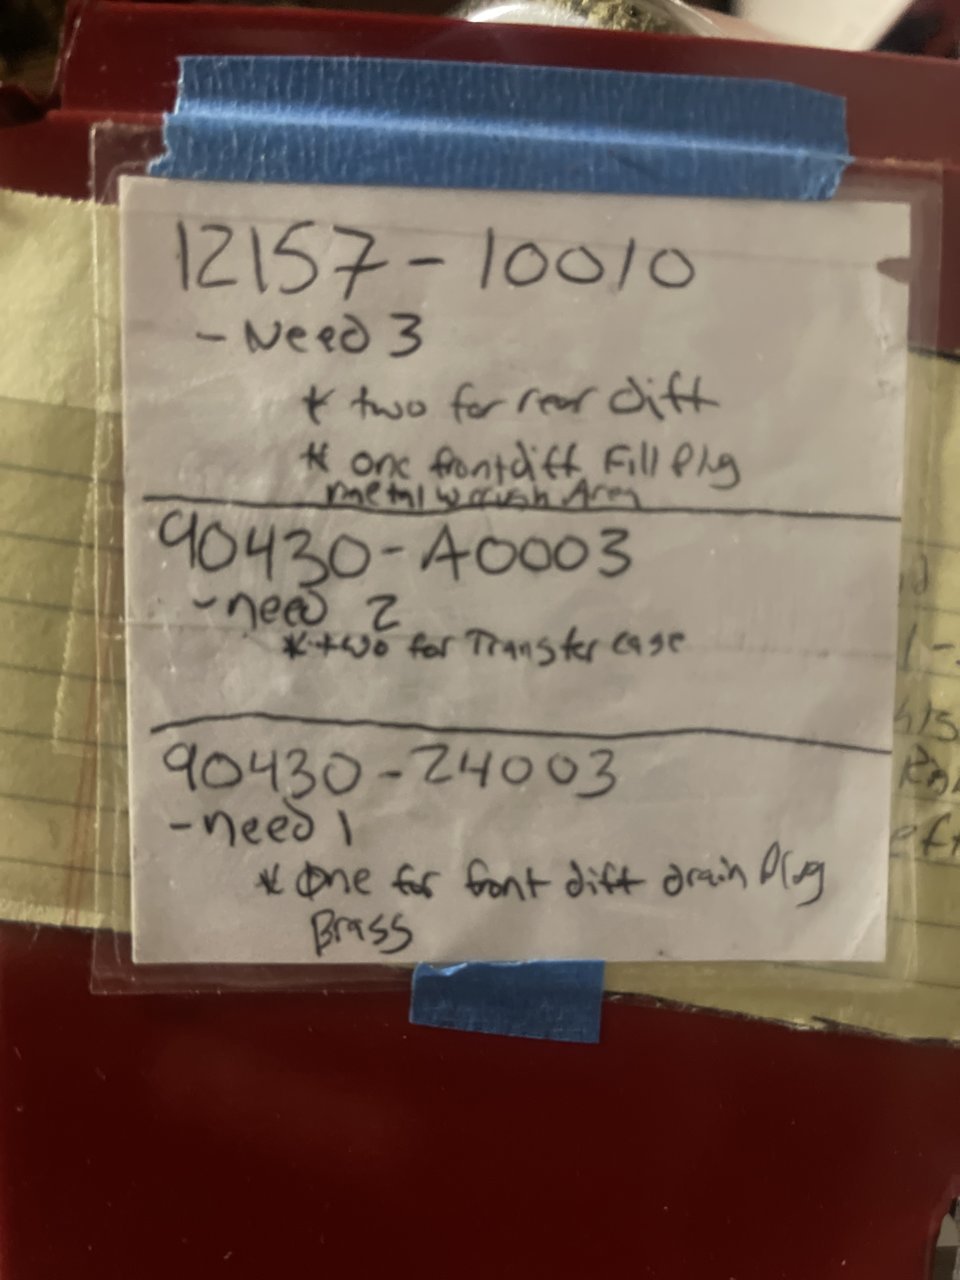 12157-10010
- Need 3
* two for rear diff
* one front diff Fill Plug
metal
90430-A0003
- need 2
* two for Transfer case
90430-24003
- need 1
* One for front diff drain Plug
Brass